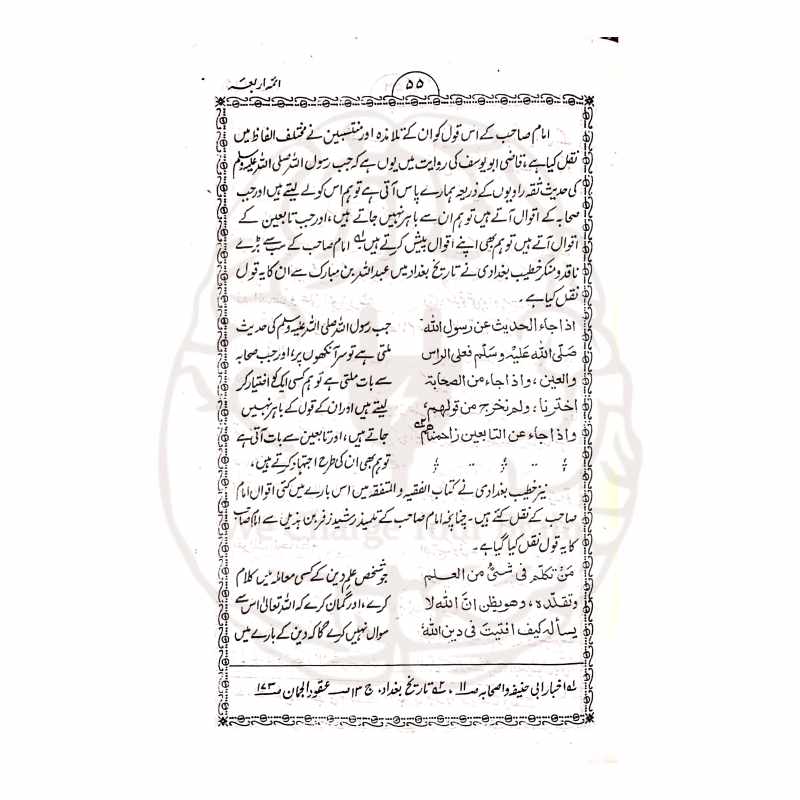 ائمہ اربعہ
۵۵
امام صاحب کے اس قول کو ان کے تلامذہ اور منتسبین نے مختلف الفاظ میں
نقل کیا ہے، قاضی ابو یوسف کی روایت میں یوں ہے کہ جب رسول اللہ صلی اللہ علیہ وسلم
کی حدیث ثقہ راویوں کے ذریعہ ہمارے پاس آتی ہے تو ہم اس کو لے لیتے ہیں اور جب
صحابہ کے اقوال آتے ہیں تو ہم ان سے باہر نہیں جاتے ہیں، اور جب تابعین کے
اقوال آتے ہیں تو ہم بھی اپنے اقوال پیش کرتے ہیں لہ امام صاحب کے سب سے بڑے
ناقد و منکر خطیب بغدادی نے تاریخ بغداد میں عبداللہ بن مبارک سے ان کا یہ قول
نقل کیا ہے۔
اذا جاء الحدیث عن رسول اللہ
صلّی اللہ علیہ وسلّم فعلی الراس
والعین، واذا جاء من الصحابۃ
اخترنا، ولم نخرج من قولھم،
واذا جاء عن التابعین زاحمناھم ۲ہ
جب رسول اللہ صلی اللہ علیہ وسلم کی حدیث
ملتی ہے تو سر آنکھوں پر، اور جب صحابہ
سے بات ملتی ہے تو ہم کسی ایک کو اختیار کر
لیتے ہیں اور ان کے قول کے باہر نہیں
جاتے ہیں، اور تابعین سے بات آتی ہے
تو ہم بھی ان کی طرح اجتہاد کرتے ہیں،
نیز خطیب بغدادی نے کتاب الفقیہ والمتفقہ میں اس بارے میں کئی اقوال امام
صاحب کے نقل کئے ہیں۔ چنانچہ امام صاحب کے تلمیذ رشید زفر بن ہذیل سے امام صاحب
کا یہ قول نقل کیا گیا ہے۔
مَنْ تکلّم فی شئ من العلم
وتقلّدہ، وھو یظن انّ اللہ لا
یسألہ کیف افتیت فی دین اللہ
جو شخص علم دین کے کسی معاملہ میں کلام
کرے، اور گمان کرے کہ اللہ تعالیٰ اس سے
سوال نہیں کرے گا کہ دین کے بارے میں
لہ اخبار ابی حنیفہ واصحابہ صـ ۱۱، ۲ہ تاریخ بغداد، ج ۱۳ صـ عقود الجمان صـ ۱۷۳